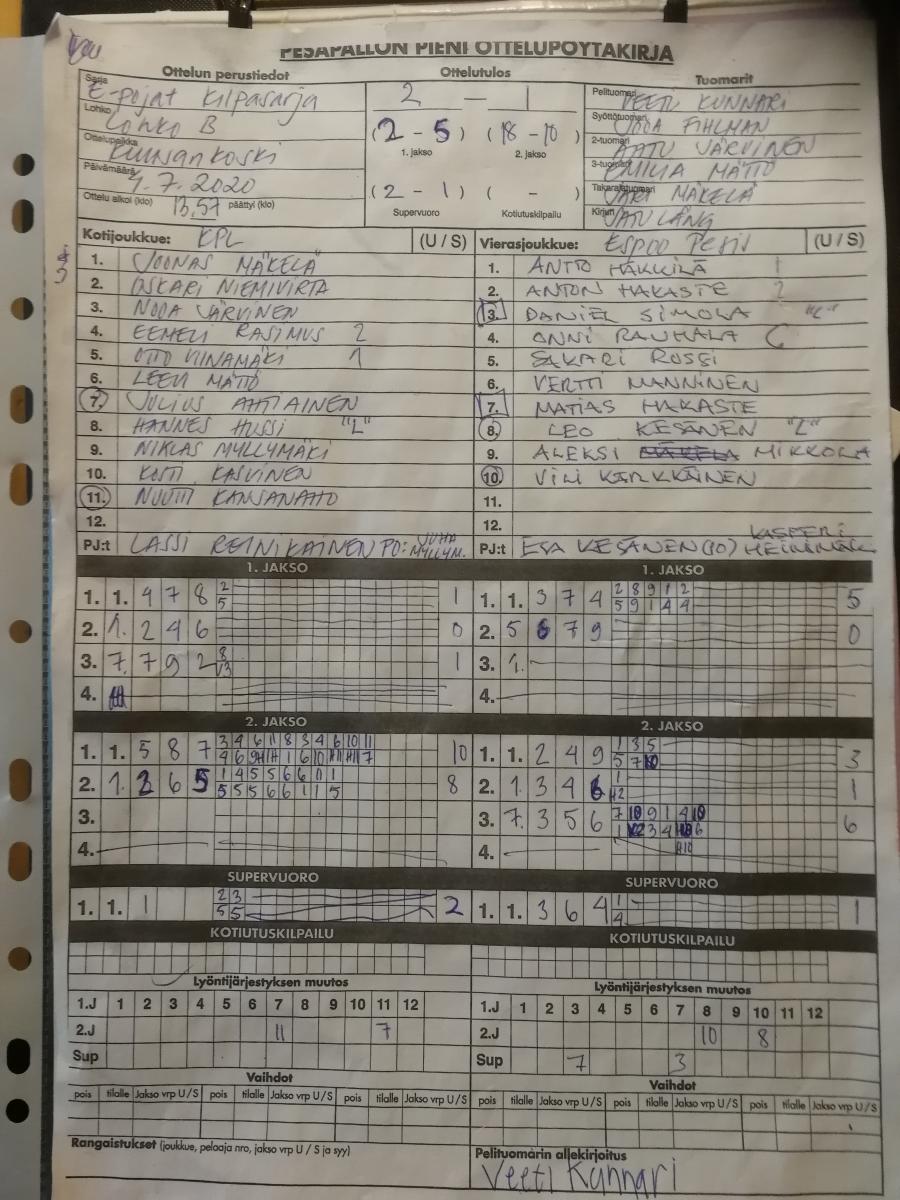 PESÄPALLON PIENI OTTELUPÖYTÄKIRJA
Ottelun perustiedot
Ottelutulos
Tuomarit
Sarja E-pojat kilpasarja
2 — 1
Pelituomari VEETI KUNNARI
Lohko Lohko B
(2 - 5) (18 - 10)
Syöttötuomari FIHLMAN
1. jakso 2. jakso
2-tuomari AATU JÄRVINEN
Ottelupaikka Kuusankoski
3-tuomari EMILIA MÄTTÖ
Päivämäärä 4.7.2020
(2 - 1) ( - )
Takarajatuomari JARI MÄKELÄ
Ottelu alkoi (klo) 13.57 päättyi (klo)
Supervuoro Kotiutuskilpailu
Kirjuri SATU LÅNG
Kotijoukkue: KPL (U / S)
Vierasjoukkue: ESPOO PESIS (U / S)
1. JOONAS MÄKELÄ
2. OSKARI NIEMIVIRTA
3. NOOA JÄRVINEN
4. EEMELI RASIMUS 2
5. OTTO VIINAMÄKI 1
6. LEEVI MÄTTÖ
7. JULIUS AHTIAINEN
8. HANNES HUSSI "L"
9. NIKLAS MYLLYMÄKI
10. KASVINEN
11. NUUTTI KANSANAHO
12.
PJ:t LASSI REINIKAINEN PO: JUHA MYLLYM.
1. ANTTO HÄKKILÄ 1
2. ANTON HAKASTE 2
3. DANIEL SIMOLA "L"
4. ONNI RAUHALA C
5. SAKARI ROSSI
6. VERTTI MANNINEN
7. MATIAS HAKASTE
8. LEO KESÄNEN "L"
9. ALEKSI MÄKELÄ MIKKOLA
10. VILI KÄRKKÄINEN
11.
12.
PJ:t ESA KESÄNEN (PO) KASPERI
1. JAKSO
1. 1. 4 7 8 2 1
5
2. 1. 2 4 6 0
3. 7. 7 9 2 8 1
V3
4.
1. JAKSO
1. 1. 3 7 4 2 8 9 1 2 5
5 9 1 4 4
2. 5 6 7 9 0
3. 1.
4.
2. JAKSO
1. 1. 5 8 7 3 4 6 11 8 3 4 6 10 11 10
2. 1. 2 6 5 1 4 5 5 6 6 11 1 8
5 5 5 6 6 1 1 5
3.
4.
2. JAKSO
1. 1. 2 4 9 1 3 5 3
5 7 10
2. 1. 3 4 6 1 1
H2
3. 7. 3 5 6 7 10 9 1 4 10 6
4.
SUPERVUORO
1. 1. 1 2 3 2
5 5
SUPERVUORO
1. 1. 3 6 4 1 1
4
KOTIUTUSKILPAILU
KOTIUTUSKILPAILU
Lyöntijärjestyksen muutos
1.J 1 2 3 4 5 6 7 8 9 10 11 12
2.J 11 7
Sup
Lyöntijärjestyksen muutos
1.J 1 2 3 4 5 6 7 8 9 10 11 12
2.J 10 8
Sup 7 3
Vaihdot
pois tilalle Jakso vrp U / S pois tilalle Jakso vrp U / S pois tilalle Jakso vrp U / S
Vaihdot
pois tilalle Jakso vrp U / S pois tilalle Jakso vrp U / S pois tilalle Jakso vrp U / S
Rangaistukset (joukkue, pelaaja nro, jakso vrp U / S ja syy)
Pelituomarin allekirjoitus
Veeti Kunnari